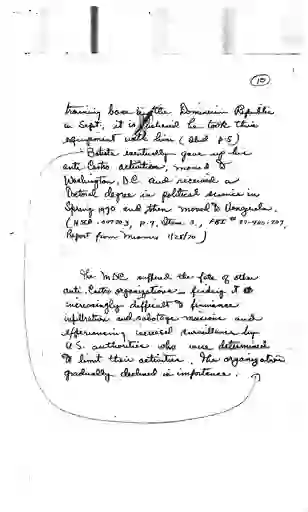 (10)
training base in the Dominican Republic
in Sept, it is believed he took this
equipment with him (Ibid p.5)
Batista eventually gave up his
anti-Castro activities, moved to
Washington, D.C. and received a
Doctoral degree in political science in
Spring 1970 and then moved to Venezuela.
(HSCA p. 7, Item 3, FBI #
Report from Miami 1/28/70)
The MDC suffered the fate of other
anti-Castro organizations - finding it
increasingly difficult to finance
infiltration and sabotage missions and
experiencing increased surveillance by
U.S. authorities who were determined
to limit their activities. The organization
gradually declined in importance.